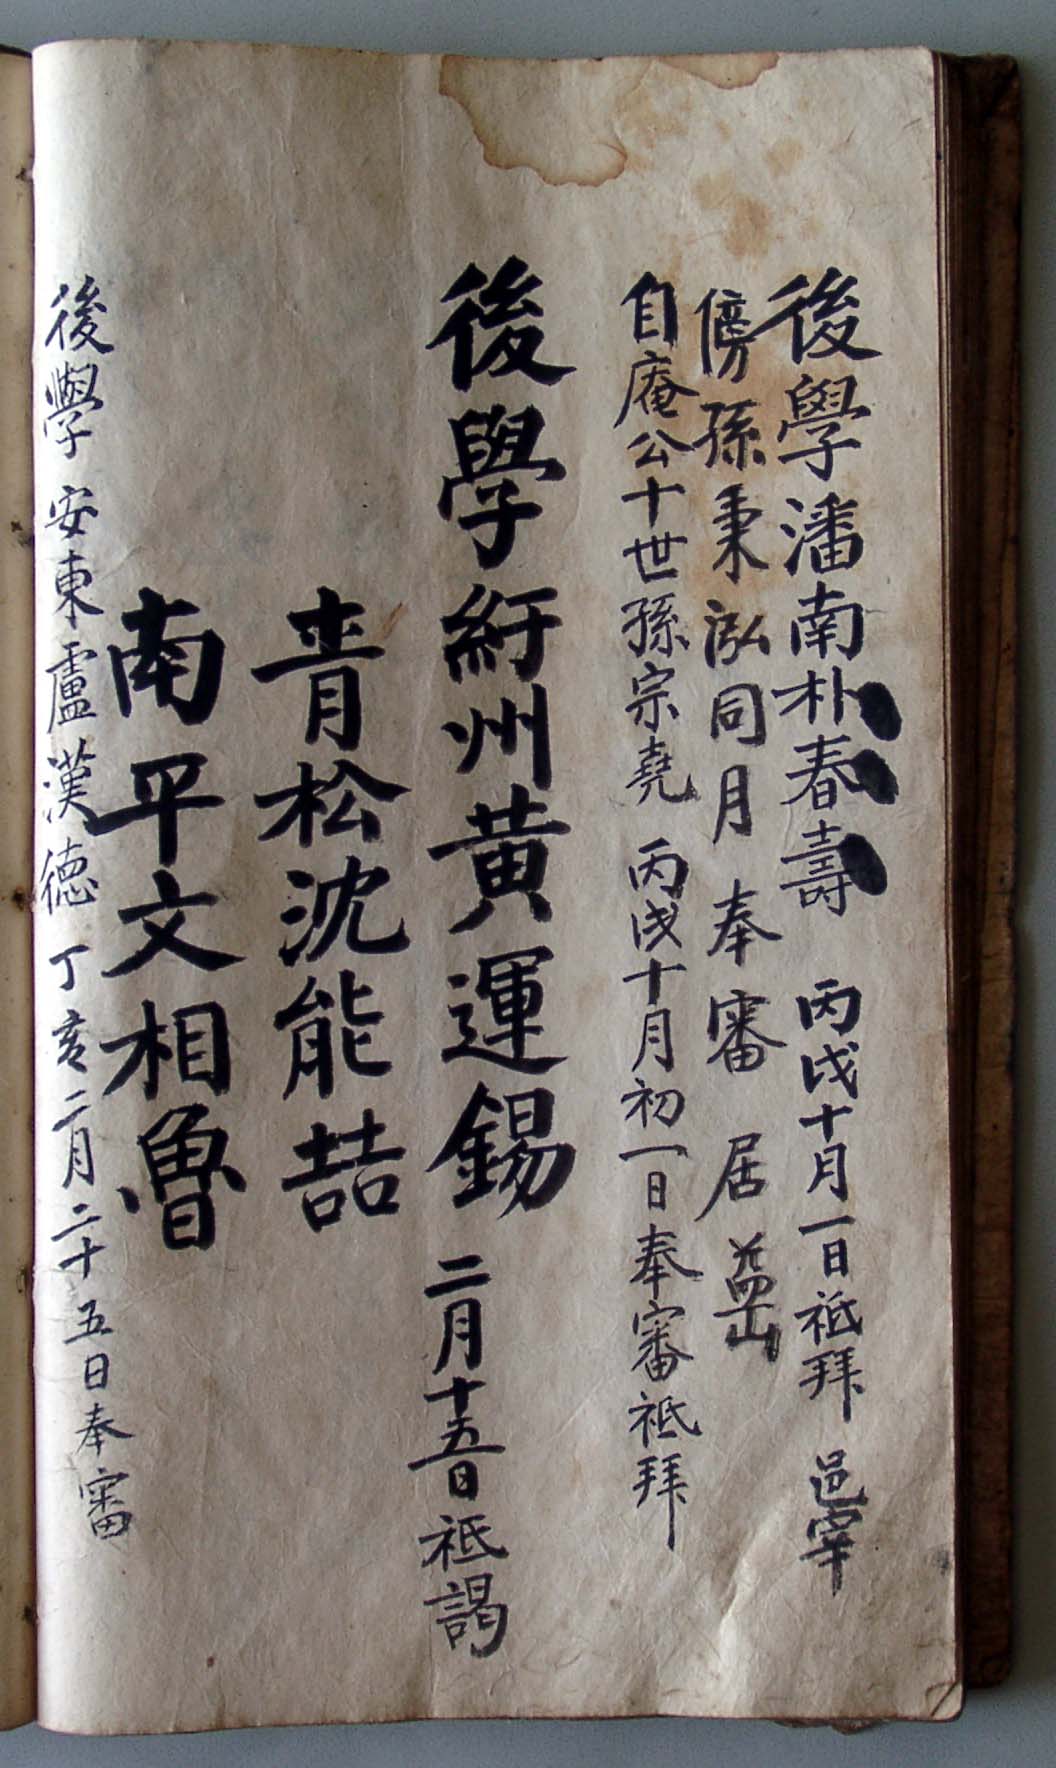 後學潘南朴春壽 丙戌十月一日祗拜 邑宰
傍孫秉泓同月奉審 居益山
自庵公十世孫宗堯 丙戌十月初一日奉審祗拜
後學紆州黃運錫 二月十五日祗謁
青松沈能喆
南平文相魯
後學安東盧漢德 丁亥二月二十五日奉審